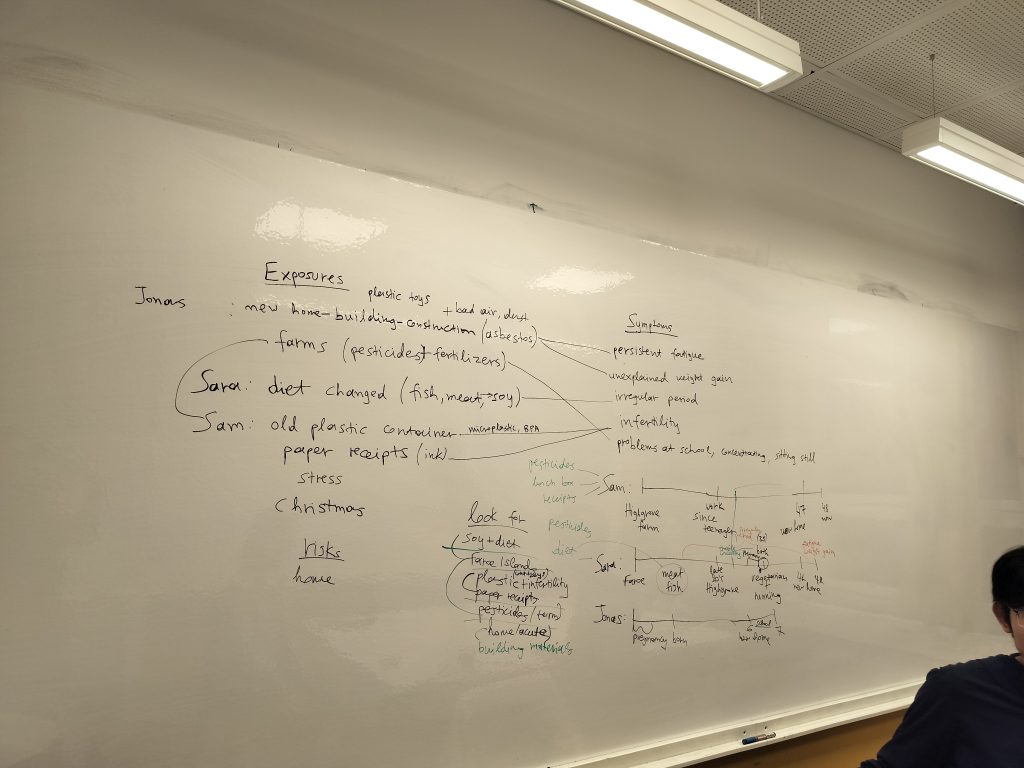 Exposures
plastic toys
+ bad air, dust
Jonas : new home-building-construction (asbestos)
farms (pesticides + fertilizers)
Sara: diet changed (fish, meat, → soy)
Sam: old plastic container microplastic, BPA
paper receipts (ink)
stress
Christmas
risks
house
Symptoms
persistent fatigue
unexplained weight gain
irregular period
infertility
problems at school, concentrating, sitting still
look for
soy + diet
faroe island
plastic + infertility
paper receipts
pesticides / farm
home (acute)
building materials
pesticides
lunch box
receipts
Sam:
Highgrove farm
work since teenager
47 new home
48 now
pesticides
diet
Sara:
faroe
meat fish
late 20's Highgrove
vegetarian running
new home
weight gain
Jonas:
pregnancy
born
6
school